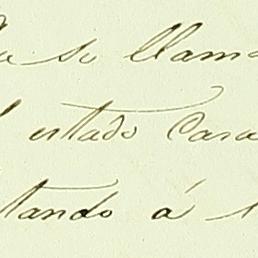 se llama
estado Casa
tando á